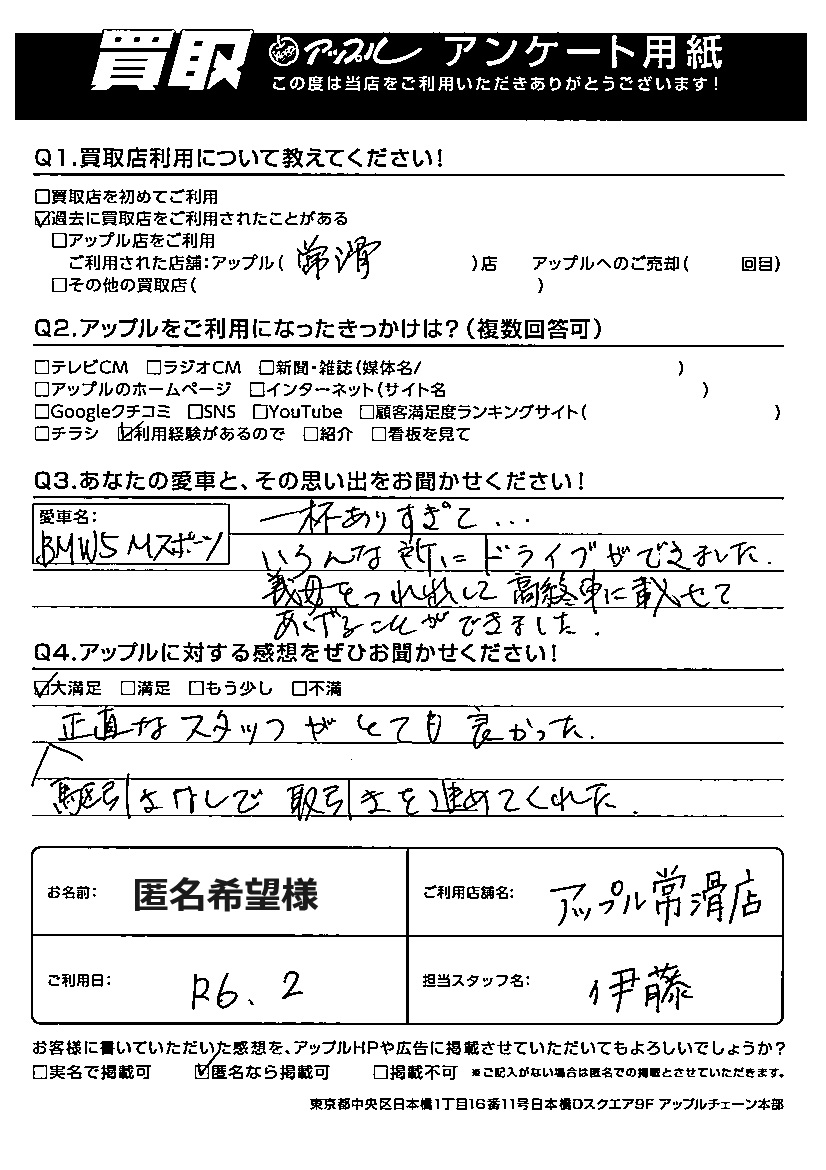 買取 アップル アンケート用紙
この度は当店をご利用いただきありがとうございます！
Q1.買取店利用について教えてください！
□買取店を初めてご利用
☑過去に買取店をご利用されたことがある
□アップル店をご利用
ご利用された店舗：アップル（ 常滑 ）店 アップルへのご売却（ 回目）
□その他の買取店（ ）
Q2.アップルをご利用になったきっかけは？（複数回答可）
□テレビCM □ラジオCM □新聞・雑誌（媒体名/ ）
□アップルのホームページ □インターネット（サイト名 ）
□Googleクチコミ □SNS □YouTube □顧客満足度ランキングサイト（ ）
□チラシ ☑利用経験があるので □紹介 □看板を見て
Q3.あなたの愛車と、その思い出をお聞かせください！
愛車名：
BMW5 Mスポーツ
一杯ありすぎて...
いろんな所にドライブができました.
義母をつれ出して高終車に載せて
あげることができました.
Q4.アップルに対する感想をぜひお聞かせください！
☑大満足 □満足 □もう少し □不満
正直なスタッフがとても良かった.
駆引きなしで取引きを進めてくれた.
お名前： 匿名希望様
ご利用店舗名： アップル常滑店
ご利用日： R6.2
担当スタッフ名： 伊藤
お客様に書いていただいた感想を、アップルHPや広告に掲載させていただいてもよろしいでしょうか？
□実名で掲載可 ☑匿名なら掲載可 □掲載不可 ※ご記入がない場合は匿名での掲載とさせていただきます。
東京都中央区日本橋1丁目16番11号日本橋Dスクエア9F アップルチェーン本部